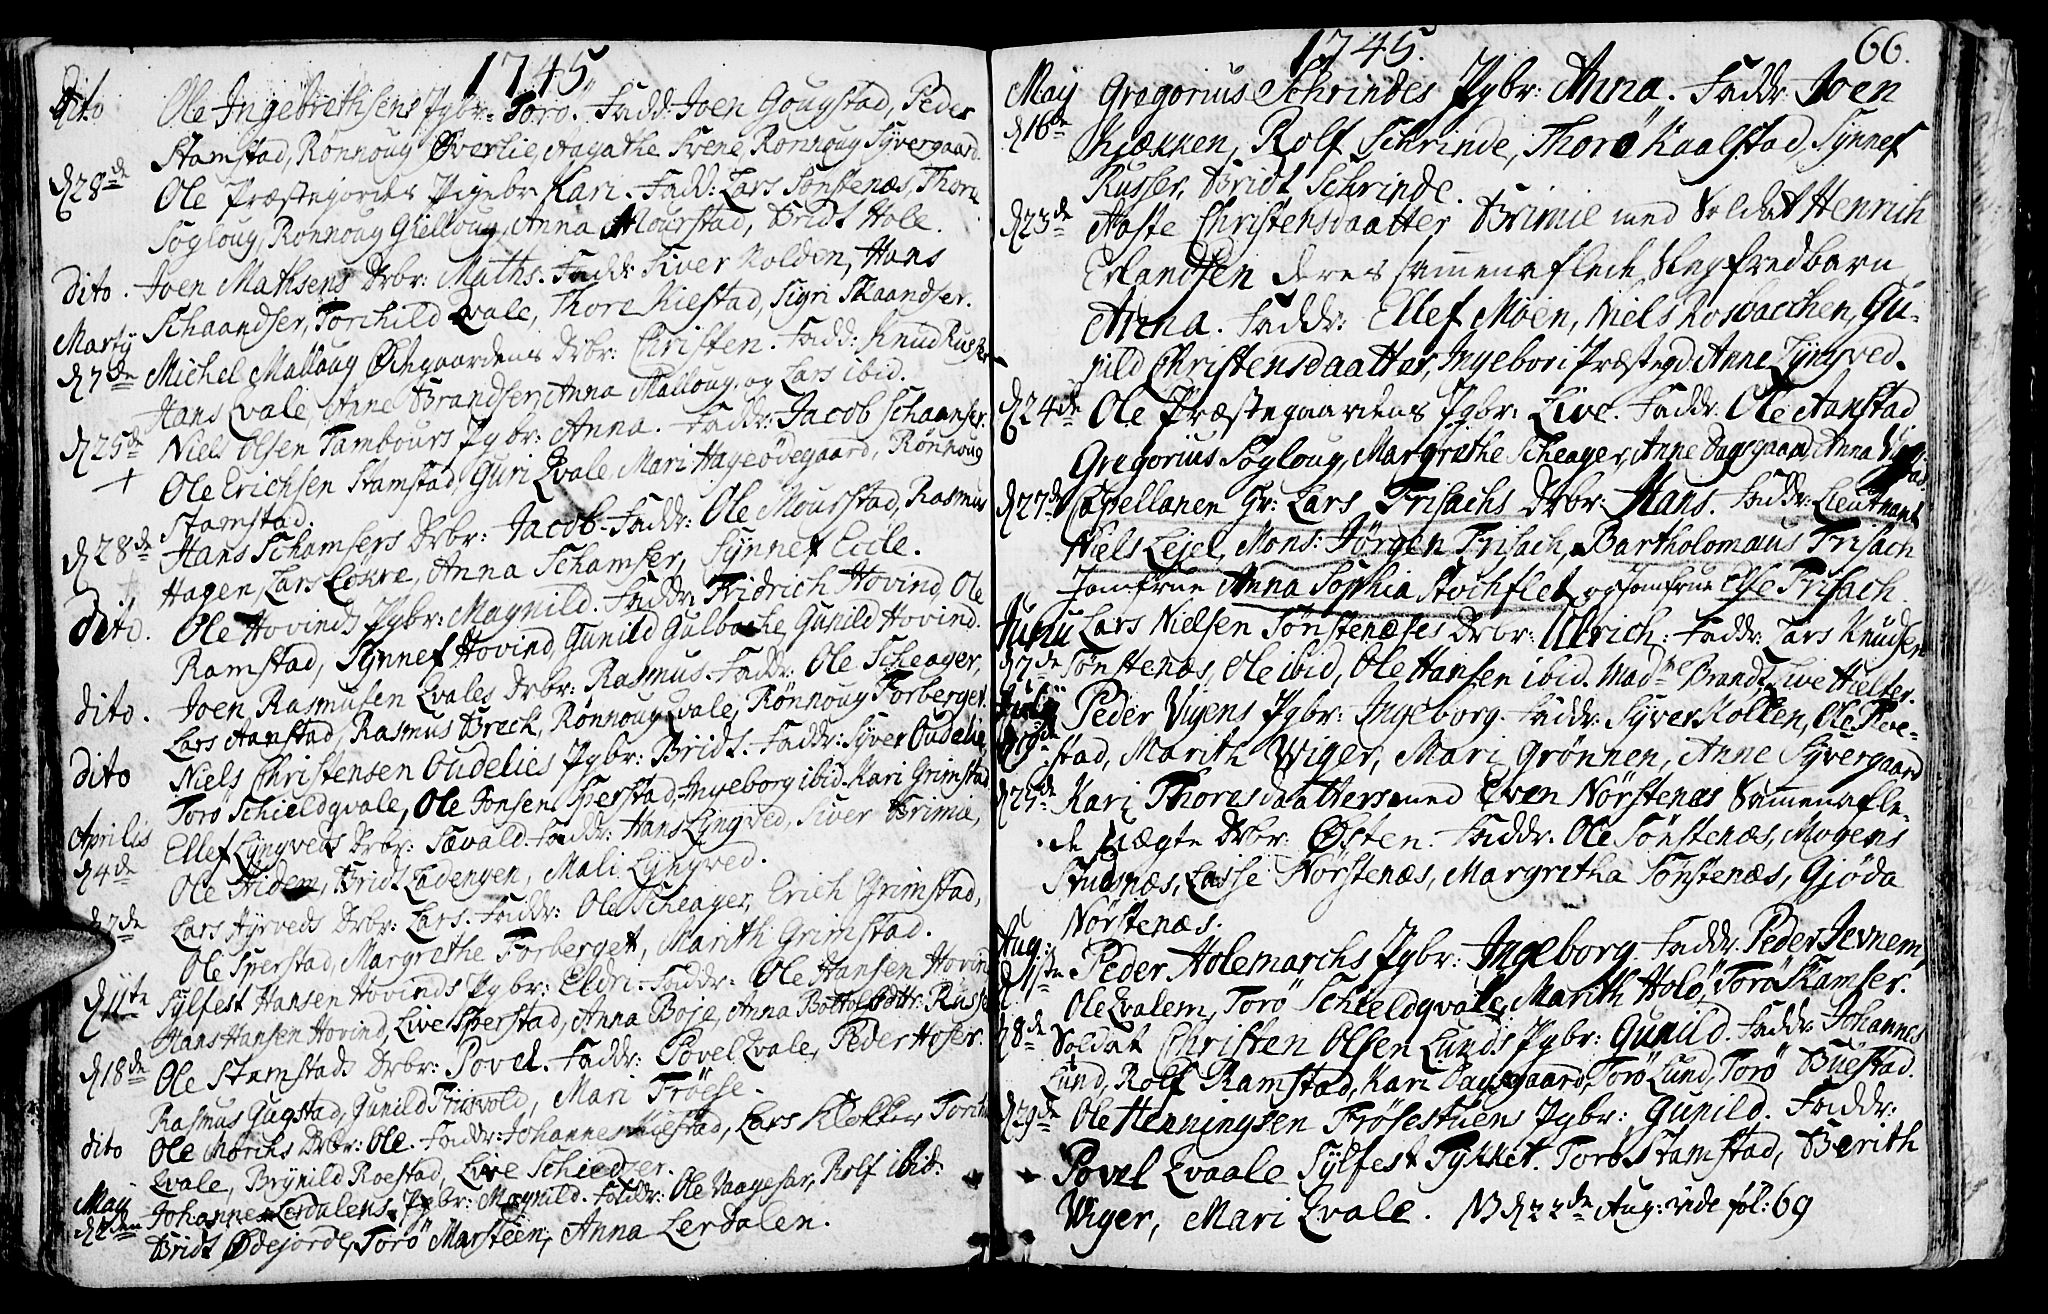 1745
dito Ole Ingebrethsens Pgbr: Torö. Fadd: Joen Gougstad, Peder
Stamstad, Rönnoug Øverlie, Aagathe Svene, Rönnoug Syvergaard.
d 28de Ole Præstegiordes Pigebr: Kari. Fadd: Lars Sönstenæs, Thore
Sogloug, Rönnoug Gielloug, Anna Mourstad, Bridt Hole.
dito. Joen Mathsens Drbr: Maths. Fadd: Siver Kolden, Hans
Schaandser, Torchild Qvale, Thore Kiestad, Sigri Skaandser.
Martij
d 7de Michel Malloug Ødegaardens Drbr: Christen. Fadd: Knud Russer
Hans Qvale, Anne Brandser, Anna Malloug og Lars ibid.
d 25de Niels Olsen Tambours Pgbr: Anna. Faddr: Jacob Schaanser.
+ Ole Erichsen Stamstad, Guri Qvale, Mari Hageödegaard, Rönnoug
Stamstad.
d 28de Hans Schamsers Drbr: Jacob. Faddr: Ole Mourstad, Rasmus
Hagen, Lars Lokre, Anna Schamser, Synnef Lille.
dito. Ole Hovinds Pgbr: Magnild. Faddr: Fridrich Hovind, Ole
Ramstad, Synnef Hovind, Gunild Gulbache, Gunild Hovind.
dito. Joen Rasmusen Qvales Drbr: Rasmus. Faddr: Ole Scheager,
Lars Aanstad, Rasmus Breck, Rönnoug Qvale, Rönnoug Forberget.
dito Niels Christensen Oudelies Pgbr: Bridt. Faddr: Syver Oudelie,
Torö Schieldqvale, Ole Jonsen Sperstad, Ingeborg ibid. Kari Grimstad
Aprilis
d 4de Ellef Lyngveds Drbr: Sævald. Faddr: Hans Lyngved, Siver Brimie,
Ole Hidem, Bridt Ladengen, Mali Lyngved.
d 7de Lars Hyrveds Drbr: Lars. Faddr: Ole Scheager, Erich Grimstad,
Ole Sperstad, Margrethe Forberget, Marith Grimstad.
d 11te Sylfest Hansen Hovinds Pgbr: Eldri. Faddr: Ole Hansen Hovind
Hans Hansen Hovind, Live Sperstad, Anna Boje, Anna Bottolfsdttr: Russer
d 18de Ole Stamstads Drbr: Povel. Faddr: Povel Qvale, Peder Hoser.
Rasmus Gugstad, Gunild Frisvold, Mari Fröese.
dito Ole Morchs Drbr: Ole. Faddr: Johannes Kiestad, Lars Klokker, Torchild
Qvale, Brynild Roestad, Live Schiedser.
Maij
d 2den Johannes Lerdalens Pgbr: Magnild. Faddr: Ole Vaagesar, Rolf ibid.
Bridt Ødejorde, Torö Marsteen, Anna Lerdalen.
1745. 66.
Maij Gregorius Schrindes Pgbr: Anna. Faddr: Joen
d 16de Kjøkken, Rolf Schrinde, Thorö Kaalstad, Synnef
Russer, Bridt Schrinde.
d 23de Aaste Christensdaatter Brimie med Soldat Henrich
Erlandsen deres sammenaflede Slegfredbarn
Anna. Faddr: Ellef Moen, Niels Rosbacchen, Gu-
nild Christensdaatter, Ingebori Præstegd Anne Lyngved.
d 24de Ole Præstegaardens Pgbr: Live. Faddr: Ole Aanstad
Gregorius Sogloug, Margrethe Scheager, Anne Dagsgaard, Anna
d 27de Capellanen Hr: Lars Frisachs Drbr: Hans. Faddr: Lieutnant
Niels Lejel, Mons: Jörgen Frisach, Bartholomæus Frisach
Jomfrue Anna Sophia Stochflet, og Jomfrue Else Frisach.
Junij Lars Nielsen Sönstenæses Drbr: Ulrich: Faddr: Lars Knudsen
d 7de Sönstenæs, Ole ibid, Ole Hansen ibid. Madm Brandt, Live Hielter.
Julij Peder Vigens Pgbr: Ingeborg. Faddr: Syver Kolden, Ole Roe-
d 19de stad, Marith Wiger, Mari Grönnen, Anne Syvergaard
d 25de Kari Thoresdaatters med Even Nörstenæs Sammenafle-
de uægte Drbr: Østen. Faddr: Ole Sönstenæs, Mogens
Studsnæs, Lasse Nörstenæs, Margretha Sönstenæs, Gjöda
Nörstenæs.
Aug:
d 1te Peder Holemarchs Pgbr: Ingeborg. Faddr: Peder Jevnem,
Ole Qvalem, Torö Schieldqvale, Marith Holö, Torö Skamser.
d 8de Soldat Christen Olsen Lunds Pgbr: Gunild. Faddr: Johannes
Lund, Rolf Ramstad, Kari Dagsgaard, Torö Lund, Torö Buestad.
d 29de Ole Henningsen Fröisestuens Pgbr: Gunild. Faddr:
Povel Qvaale Sylfest Sykket. Torö Stamstad, Berith
Wiger, Mari Qvale. NB d 22de Aug: vide fol: 69